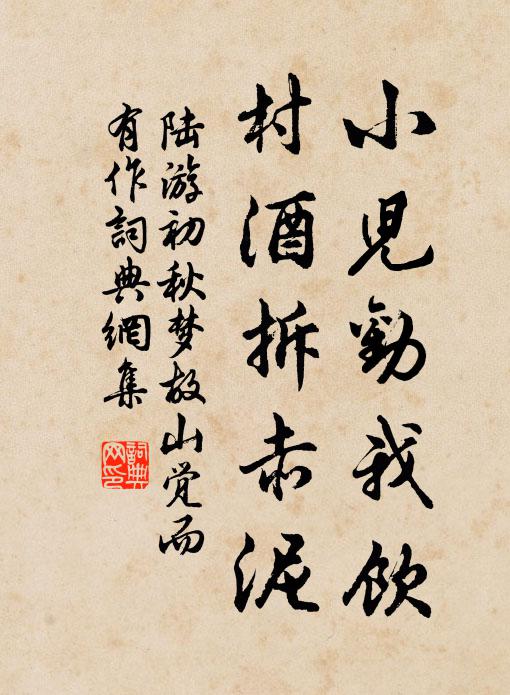 小兒勸我飲
村酒拆赤泥
陆游初秋梦故山觉而
有作詞典網集
詞典
网印